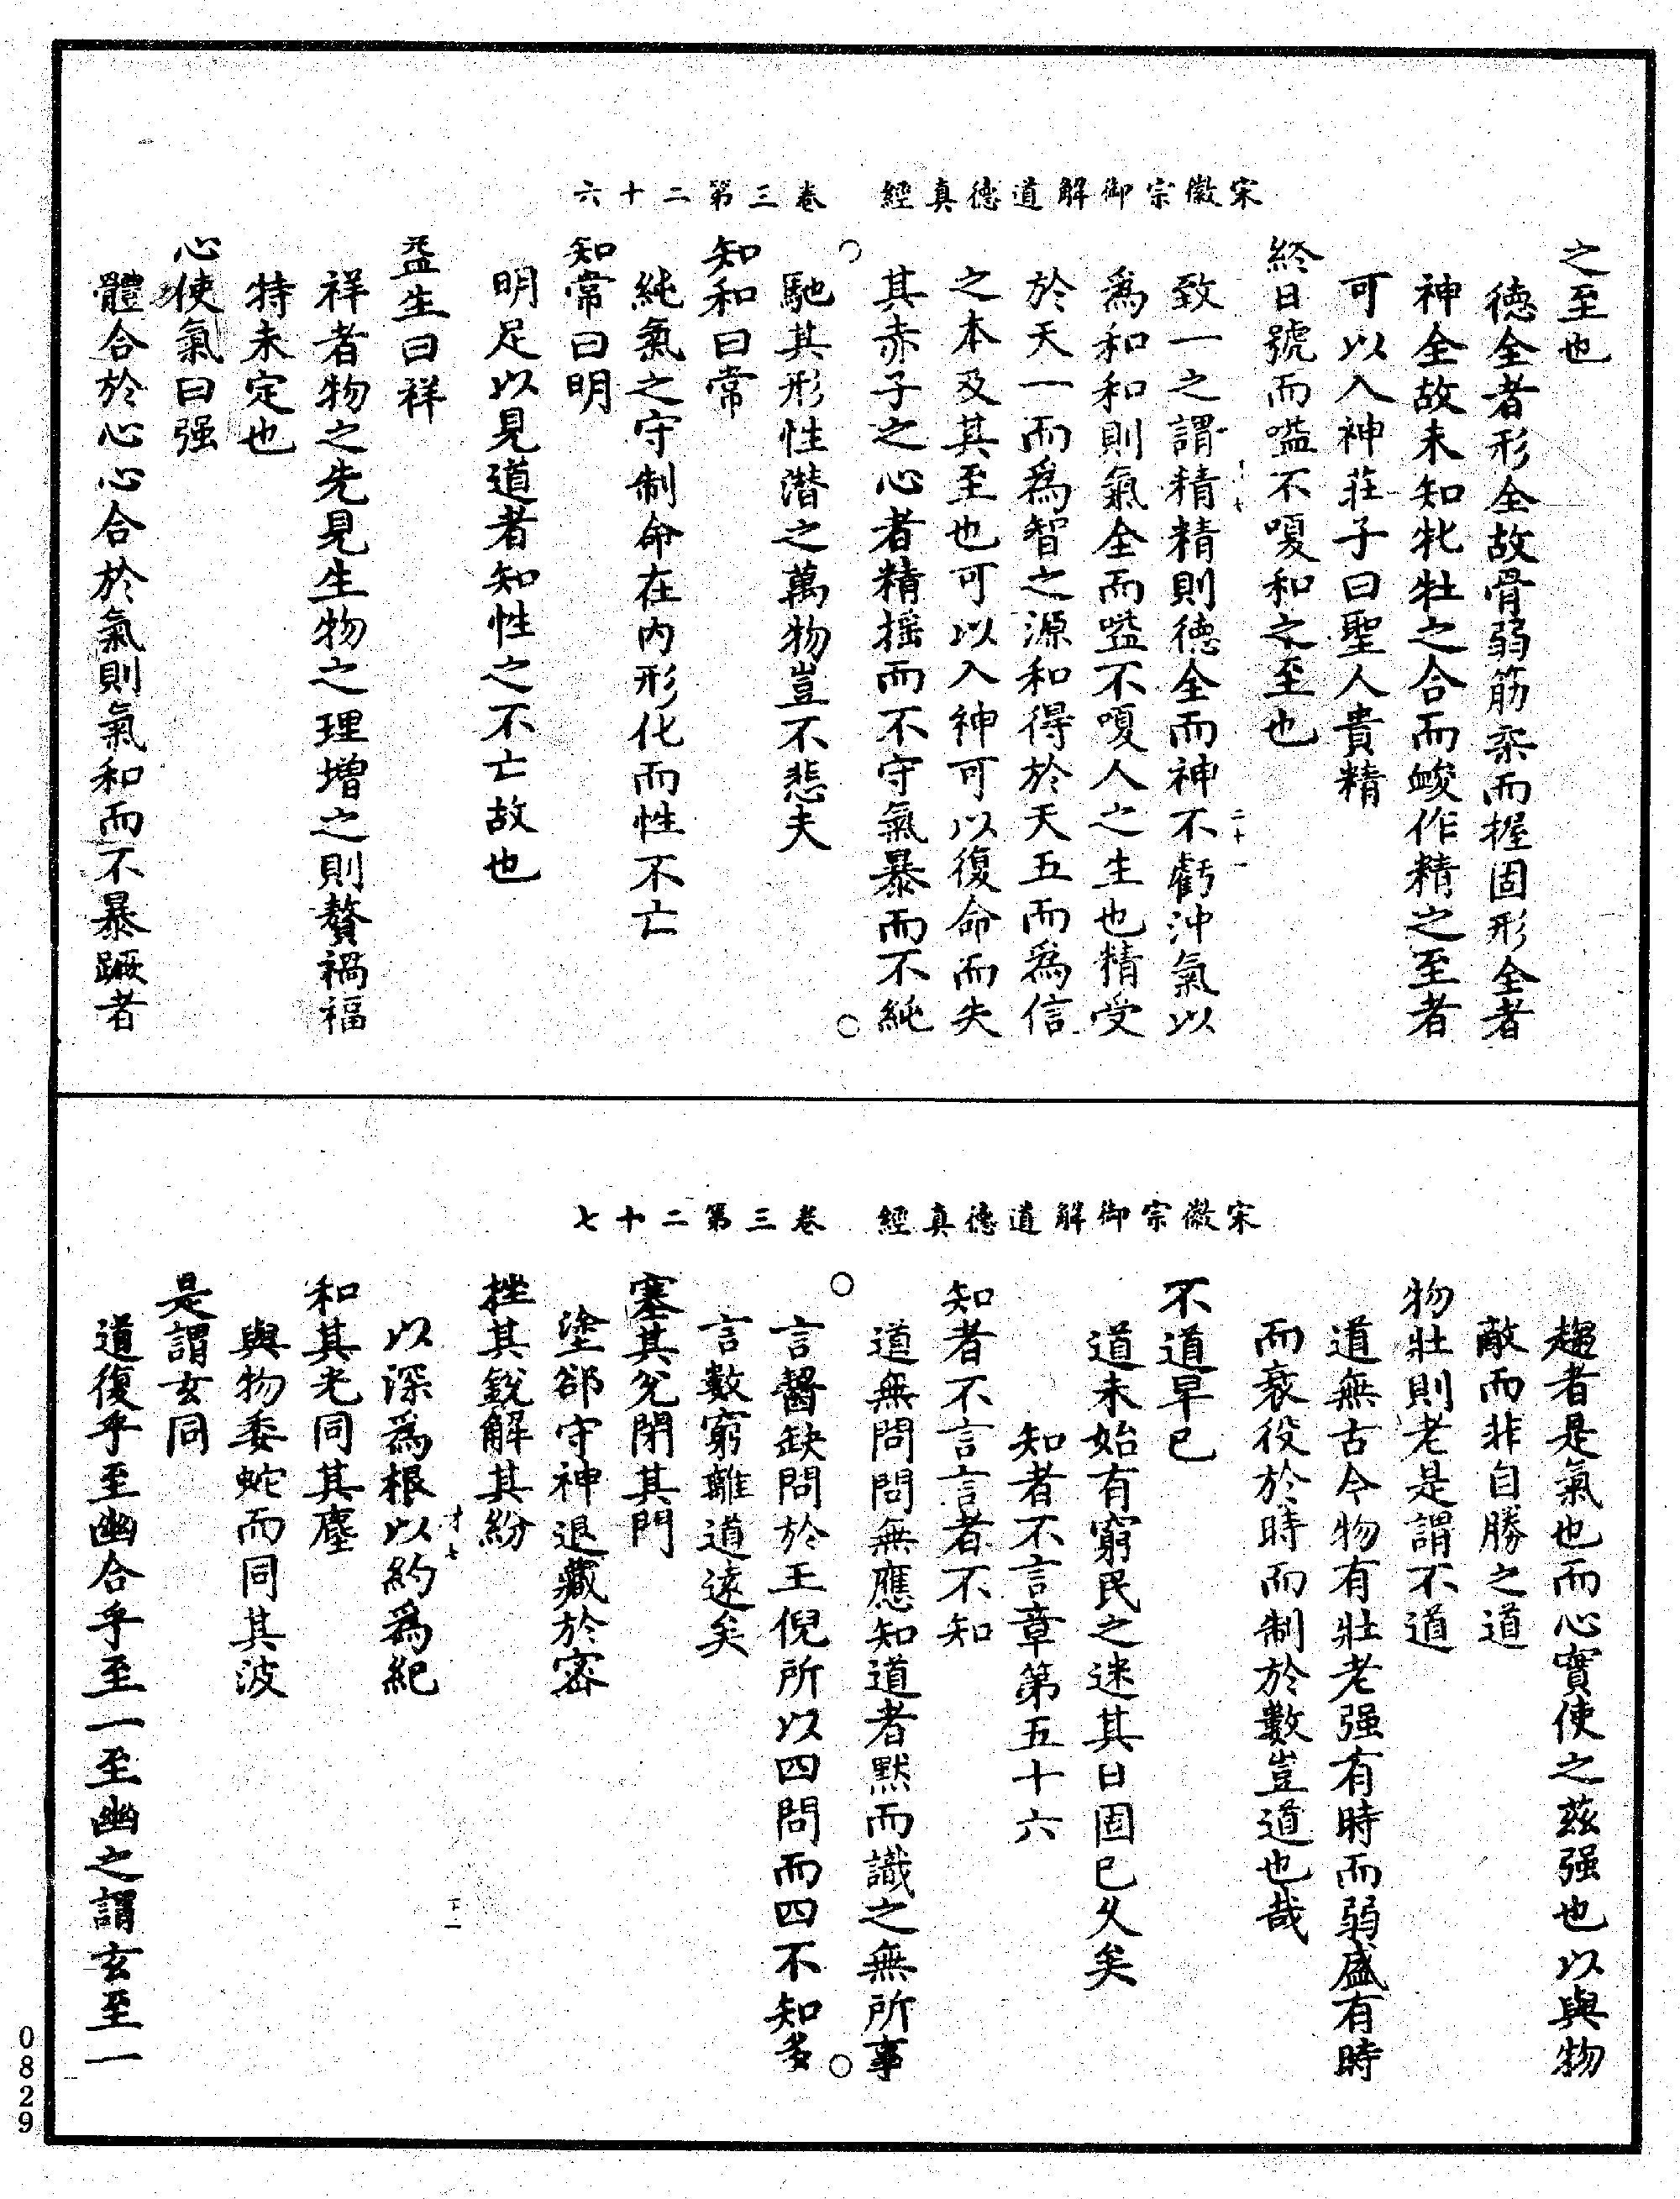 宋徽宗御解道德真經　卷三第二十六
之至也
德全者形全故骨弱筋柔而握固形全者
神全故未知牝牡之合而䘒作精之至者
可以入神莊子曰聖人貴精
終日號而嗌不嗄和之至也
致一之謂精精則德全而神不虧沖氣以
為和和則氣全而嗌不嗄人之生也精受
於天一而為智之源和得於天五而為信
之本及其至也可以入神可以復命而失
其赤子之心者精搖而不守氣暴而不純
馳其形性潛之萬物豈不悲夫
知和曰常
純氣之守制命在內形化而性不亡
知常曰明
明足以見道者知性之不亡故也
益生曰祥
祥者物之先見生物之理增之則贅禍福
特未定也
心使氣曰强
體合於心心合於氣則氣和而不暴蹶者
宋徽宗御解道德真經　卷三第二十七
趨者是氣也而心實使之茲强也以與物
敵而非自勝之道
物壯則老是謂不道
道無古今物有壯老强有時而弱盛有時
而衰役於時而制於數豈道也哉
不道早已
道未始有窮民之迷其日固已久矣
知者不言章第五十六
知者不言言者不知
道無問問無應知道者默而識之無所事
言齧缺問於王倪所以四問而四不知多
言數窮離道遠矣
塞其兌閉其門
塗郤守神退藏於密
挫其銳解其紛
以深為根以約為紀
和其光同其塵
與物委蛇而同其波
是謂玄同
道復乎至幽合乎至一至幽之謂玄至一
0829